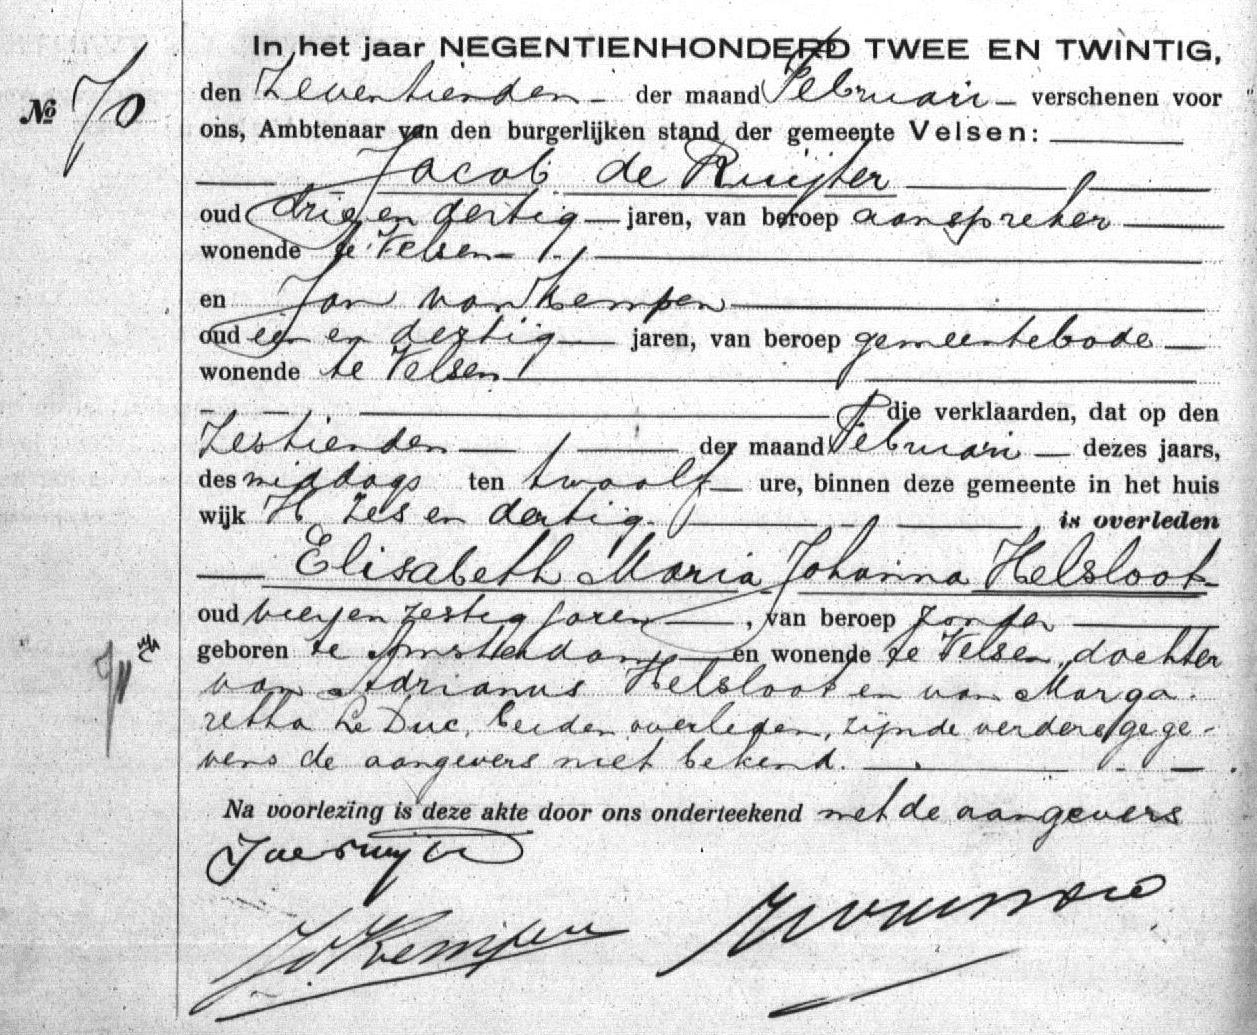 In het jaar NEGENTIENHONDERD TWEE EN TWINTIG,
№ 70 den Zeventienden der maand Februari verschenen voor
ons, Ambtenaar van den burgerlijken stand der gemeente Velsen:
Jacob de Ruijter
oud drie en dertig jaren, van beroep aanspreker
wonende te Velsen
en Jan van Kempen
oud een en dertig jaren, van beroep gemeentebode
wonende te Velsen
die verklaarden, dat op den
zestienden der maand Februari dezes jaars,
des middags ten twaalf ure, binnen deze gemeente in het huis
wijk H zes en dertig. is overleden
Elisabeth Maria Johanna Helsloot
oud vier en zestig jaren, van beroep zonder
geboren te Amsterdam en wonende te Velsen, dochter
van Adrianus Helsloot en van Marga
retha Le Duc, beiden overleden, zijnde verdere gege-
vens de aangevers niet bekend.
Na voorlezing is deze akte door ons onderteekend met de aangevers
J de Ruijter
J v Kempen